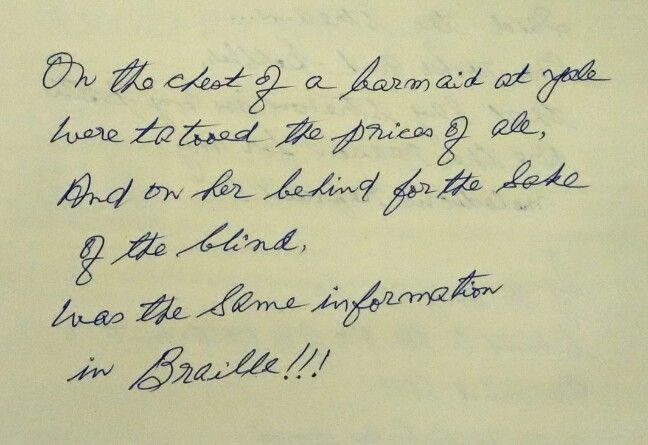 On the chest of a barmaid at yale
were tatooed the prices of ale,
And on her behind for the sake
of the blind,
was the same information
in Braille!!!